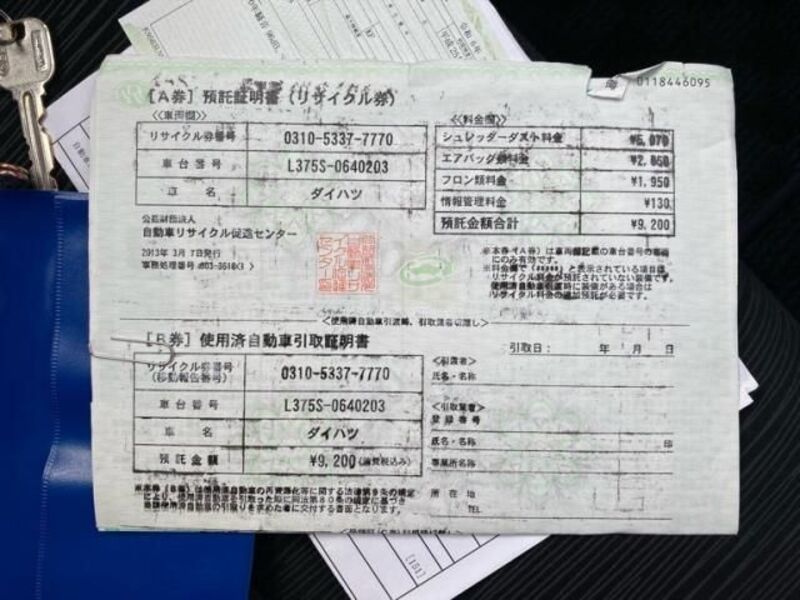 0118446095
[A券] 預託証明書（リサイクル券）
≪車両欄≫
リサイクル券番号 0310-5337-7770
車台番号 L375S-0640203
車名 ダイハツ
≪料金欄≫
シュレッダーダスト料金 ¥5,070
エアバッグ類料金 ¥2,050
フロン類料金 ¥1,950
情報管理料金 ¥130
預託金額合計 ¥9,200
公益財団法人
自動車リサイクル促進センター
2013年 3月 7日発行
※本券（A券）は車両欄記載の車台番号の車両
にのみ有効です。
リサイクル料金が預託されていない装備です。
使用済自動車引渡時に装備がある場合は
リサイクル料金の追加預託が必要です。
[B券] 使用済自動車引取証明書
引取日： 年 月 日
リサイクル券番号
（移動報告番号） 0310-5337-7770
車台番号 L375S-0640203
車名 ダイハツ
預託金額 ¥9,200（消費税込み）
≪引渡者≫
氏名・名称
≪引取業者≫
登録番号
氏名・名称 印
事業所名称
所在地
TEL
[181]